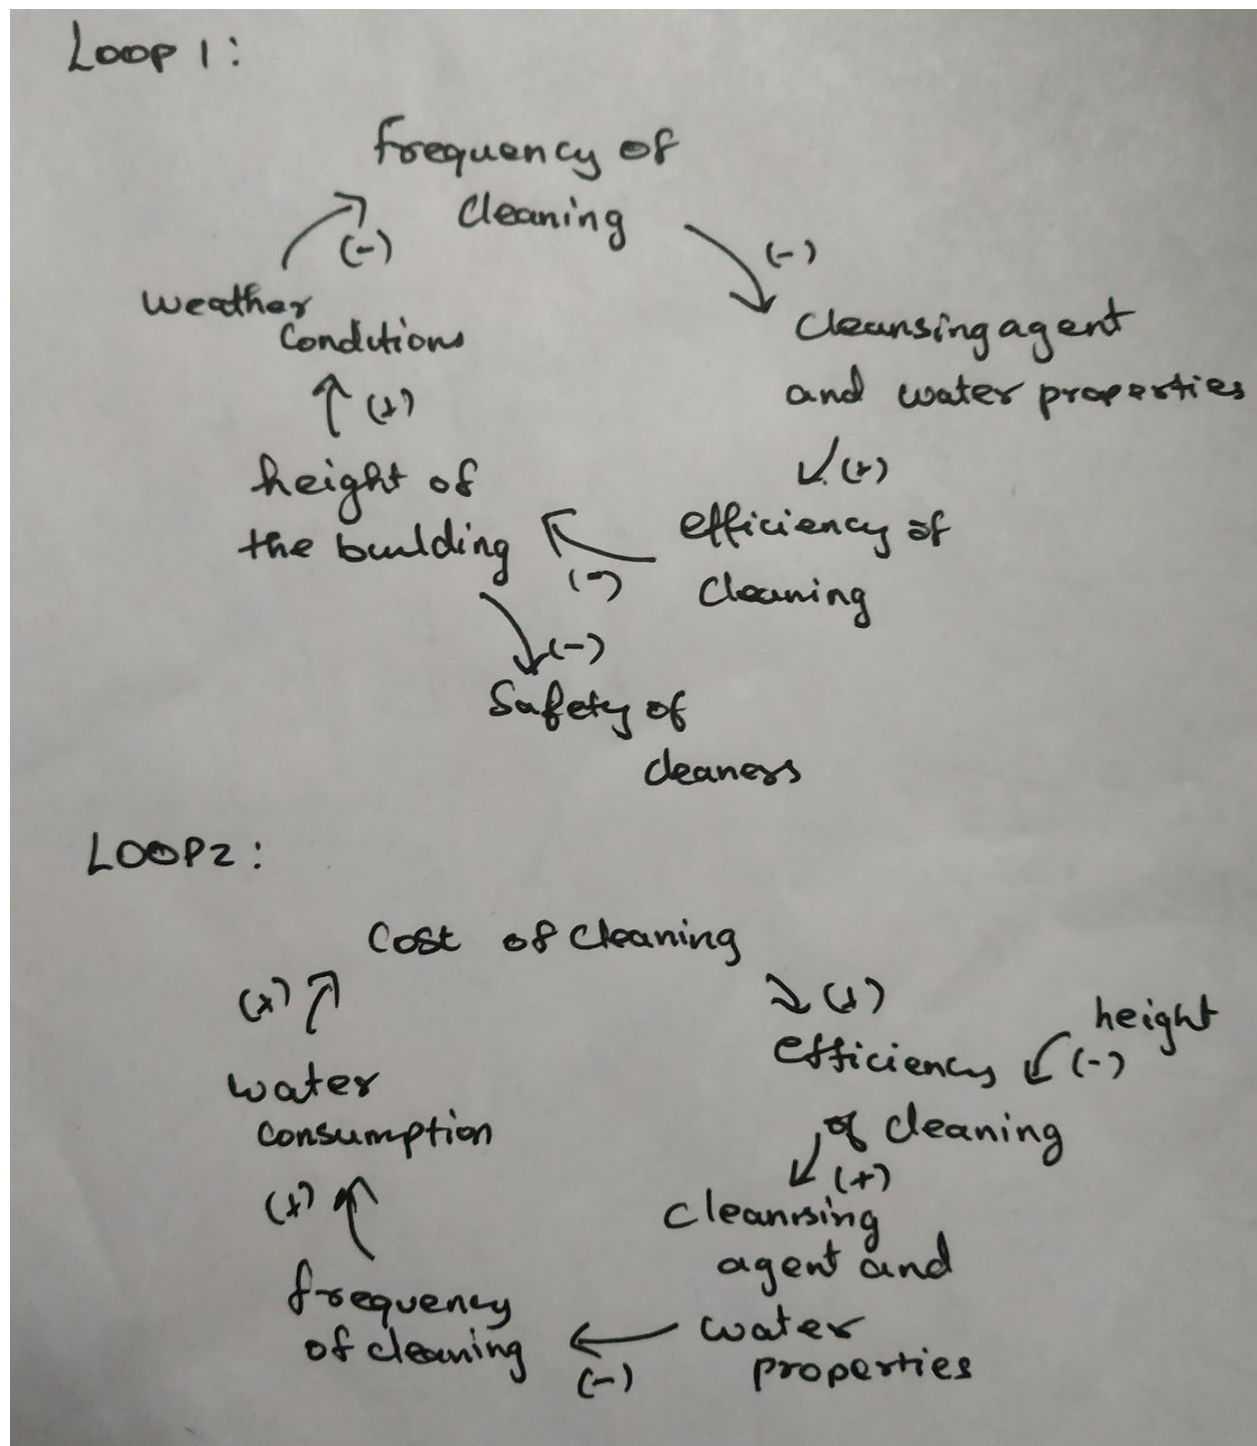 Loop 1:
frequency of
cleaning
(-)
(-)
weather
Conditions
Cleansing agent
and water properties
(+)
(+)
height of
the building
efficiency of
cleaning
(-)
(-)
Safety of
cleaners
LOOP2:
Cost of cleaning
(+)
(+)
height
efficiency
(-)
of cleaning
water
consumption
(+)
(+)
cleanising
agent and
water
properties
frequency
of cleaning
(-)